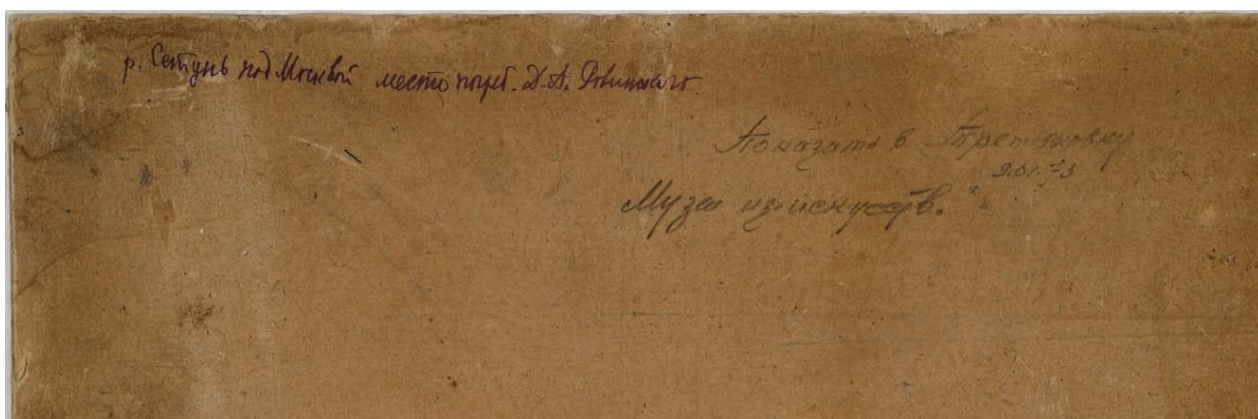 р. Сетунь под Москвой место погреб. Д.А. Ровинскаго
Показать в Третьяковку
9.01.73
Музеи из. искусств.